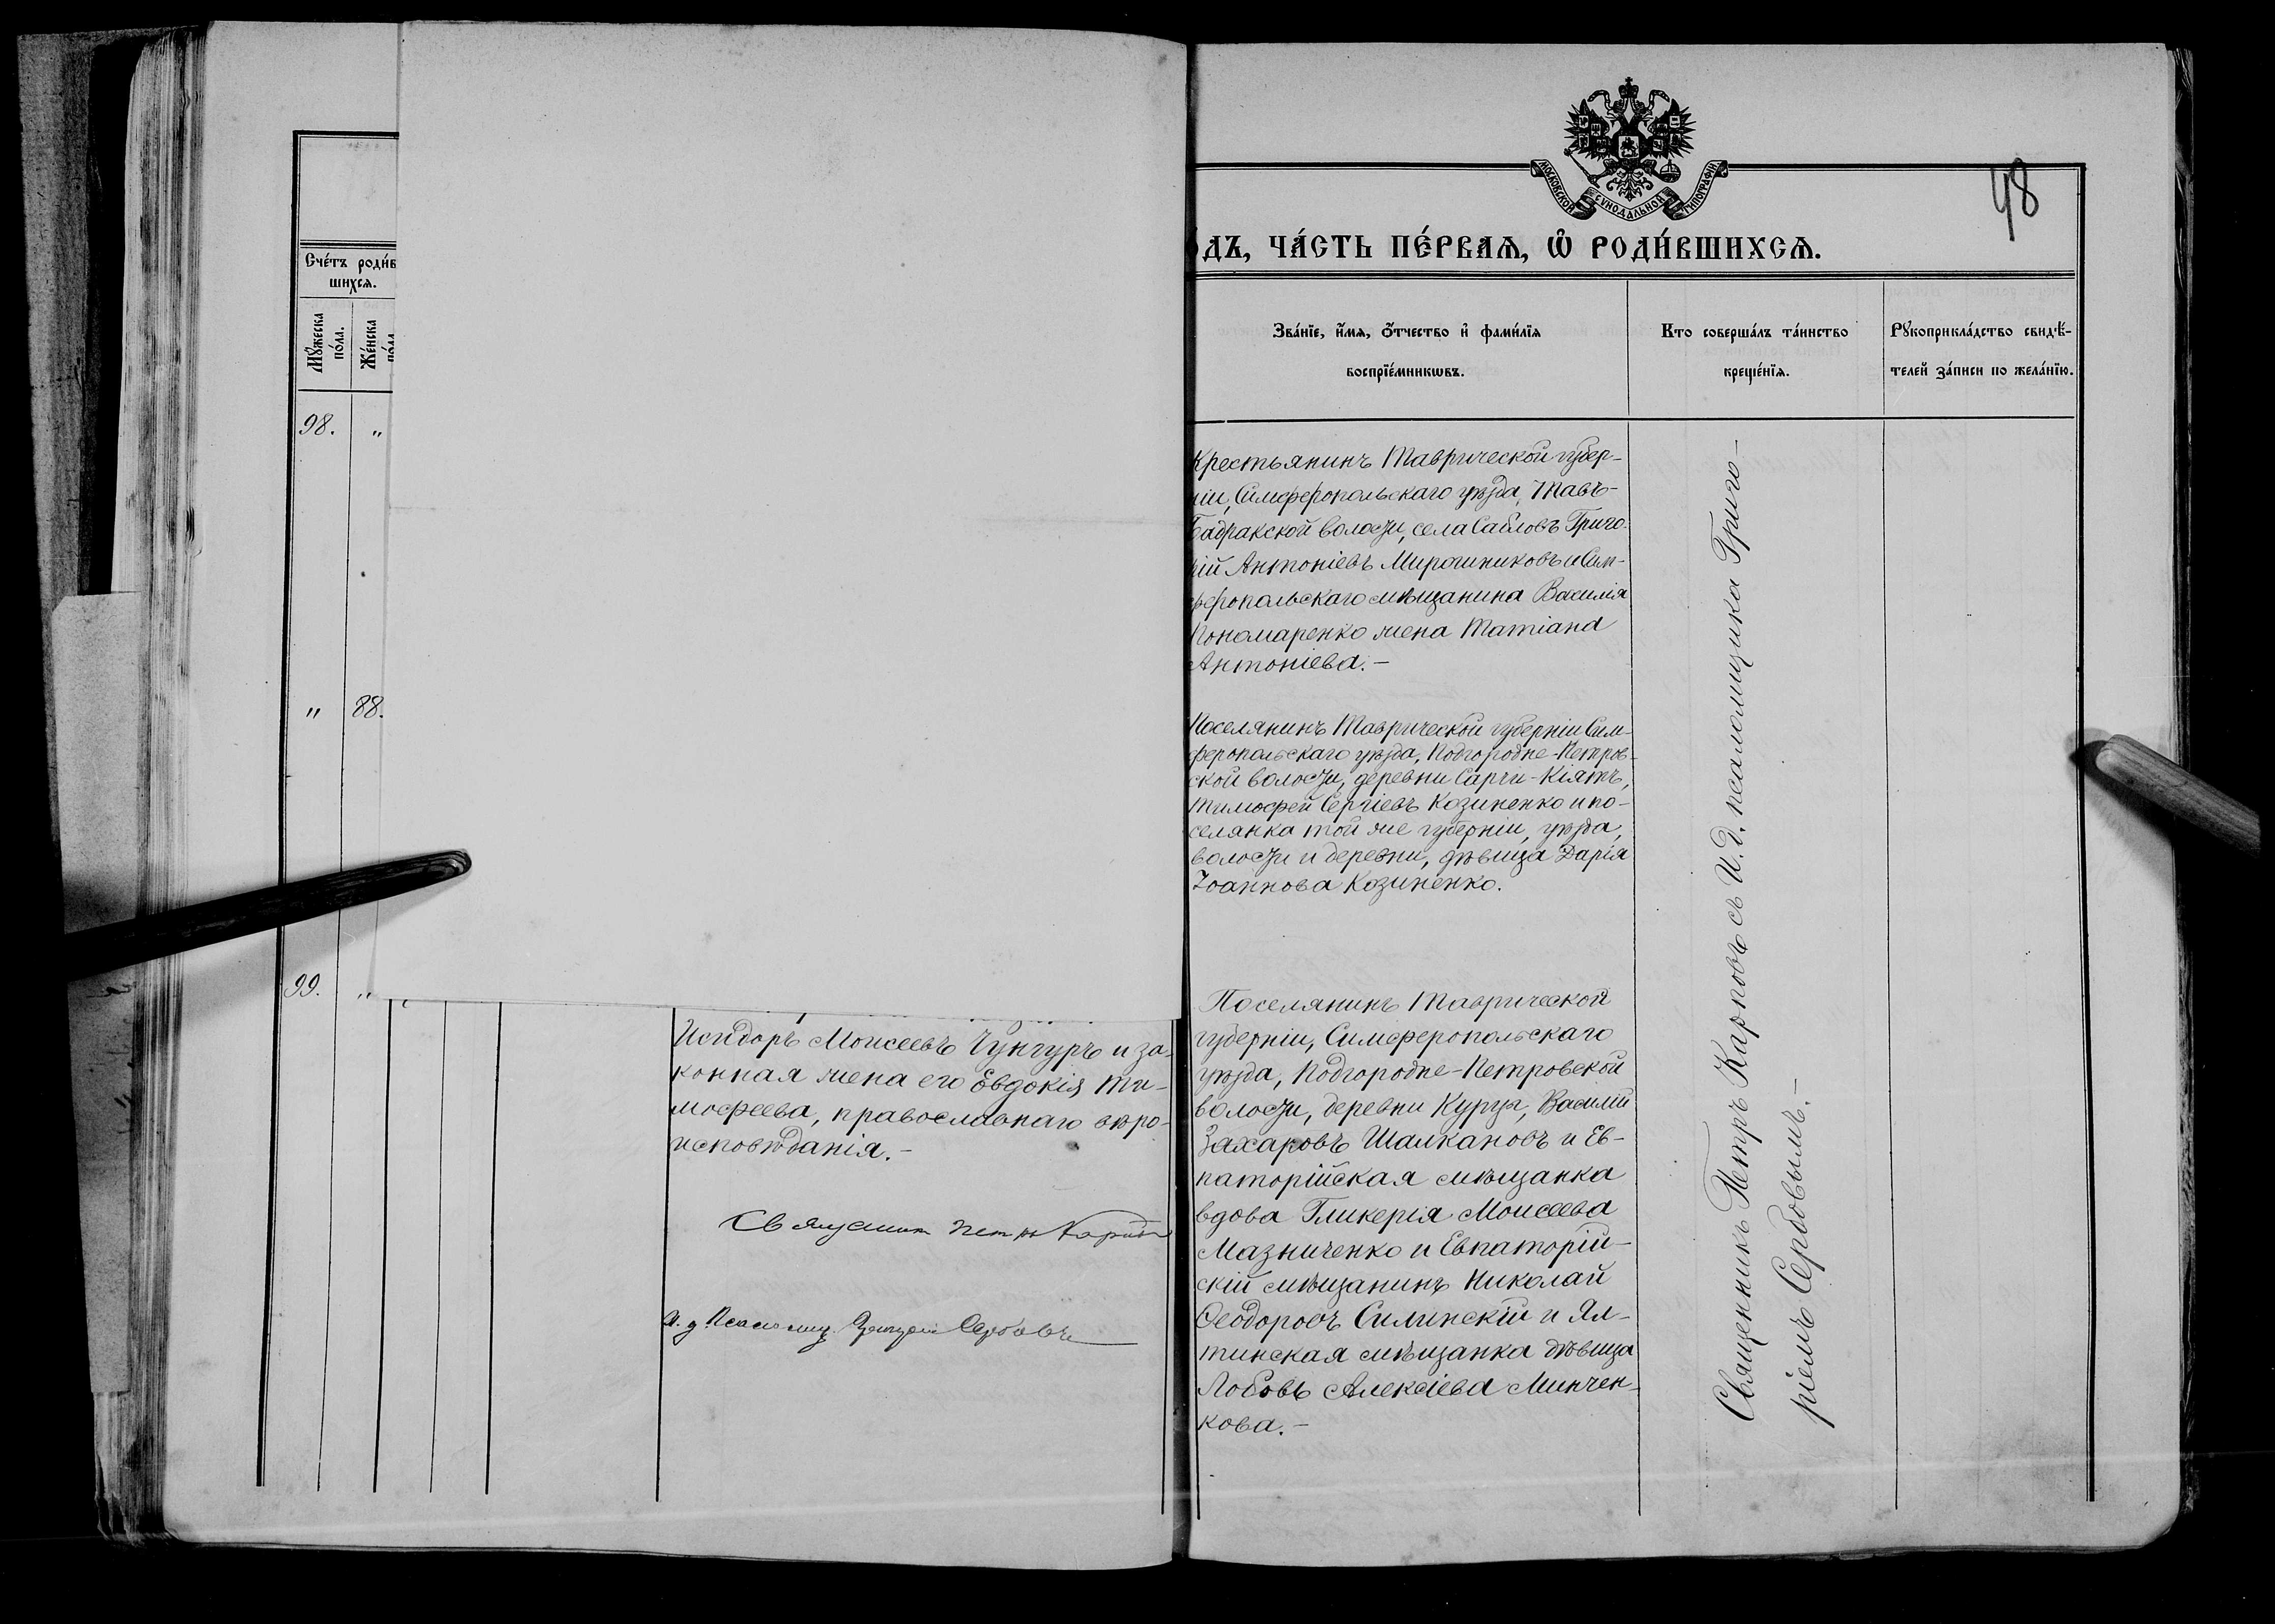 Счéтъ роди́в
шихсѧ.
Мꙋ́жеска
по́ла.
Же́нска
по́ла
98. „
„ 88.
99. „
Исидоръ Моисеевъ Чунгуръ и за-
конная жена его Евдокія Ти-
мофеева, православнаго вѣро-
исповѣданія.-
Священник Петръ
И. д. Псаломщ. Григорій Сербовъ
МОСКОВСКОЙ СѴНОДАЛЬНОЙ ТИПОГРАФІИ
48
о́дъ, ча́сть пе́рваѧ, ѡ҆ роди́вшихсѧ.
Зва́нїе, и҆́мѧ, ѻ҆́тчество и҆ фами́лїѧ
воспрїе́мникѡвъ.
Кто соверша́лъ та́инство
креще́нїѧ.
Рꙋкоприкла́дство свидѣ́-
телей за́писи по жела́нїю.
Крестьянинъ Таврической губер-
ніи, Симферопольскаго уѣзда, Тавъ-
Бадракской волости, села Сабловъ Григо-
рій Антоніевъ Мирошниковъ и Сим-
феропольскаго мѣщанина Василія
Пономаренко жена Татіана
Антоніева.-
Поселянинъ Таврической губерніи Сим-
феропольскаго уѣзда, Подгородне-Петров-
ской волости, деревни Сарчи-Кіятъ,
Тимофей Сергіевъ Козиненко и по-
селянка той же губерніи, уѣзда,
волости и деревни, дѣвица Дарія
Іоаннова Козиненко.
Поселянинъ Таврической
губерніи, Симферопольскаго
уѣзда, Подгородне-Петровской
волости, деревни Курцы, Василій
Захаровъ Шалкановъ и Ев-
паторійская мѣщанка
вдова Гликерія Моисеева
Мазниченко и Евпаторій-
скій мѣщанинъ Николай
Ѳеодоровъ Силинскій и Ял-
тинская мѣщанка дѣвица
Любовь Алексіева Минчен-
кова.-
Священникъ Петръ Карповъ съ И.д. псаломщика Григо-
ріемъ Сербовымъ.-